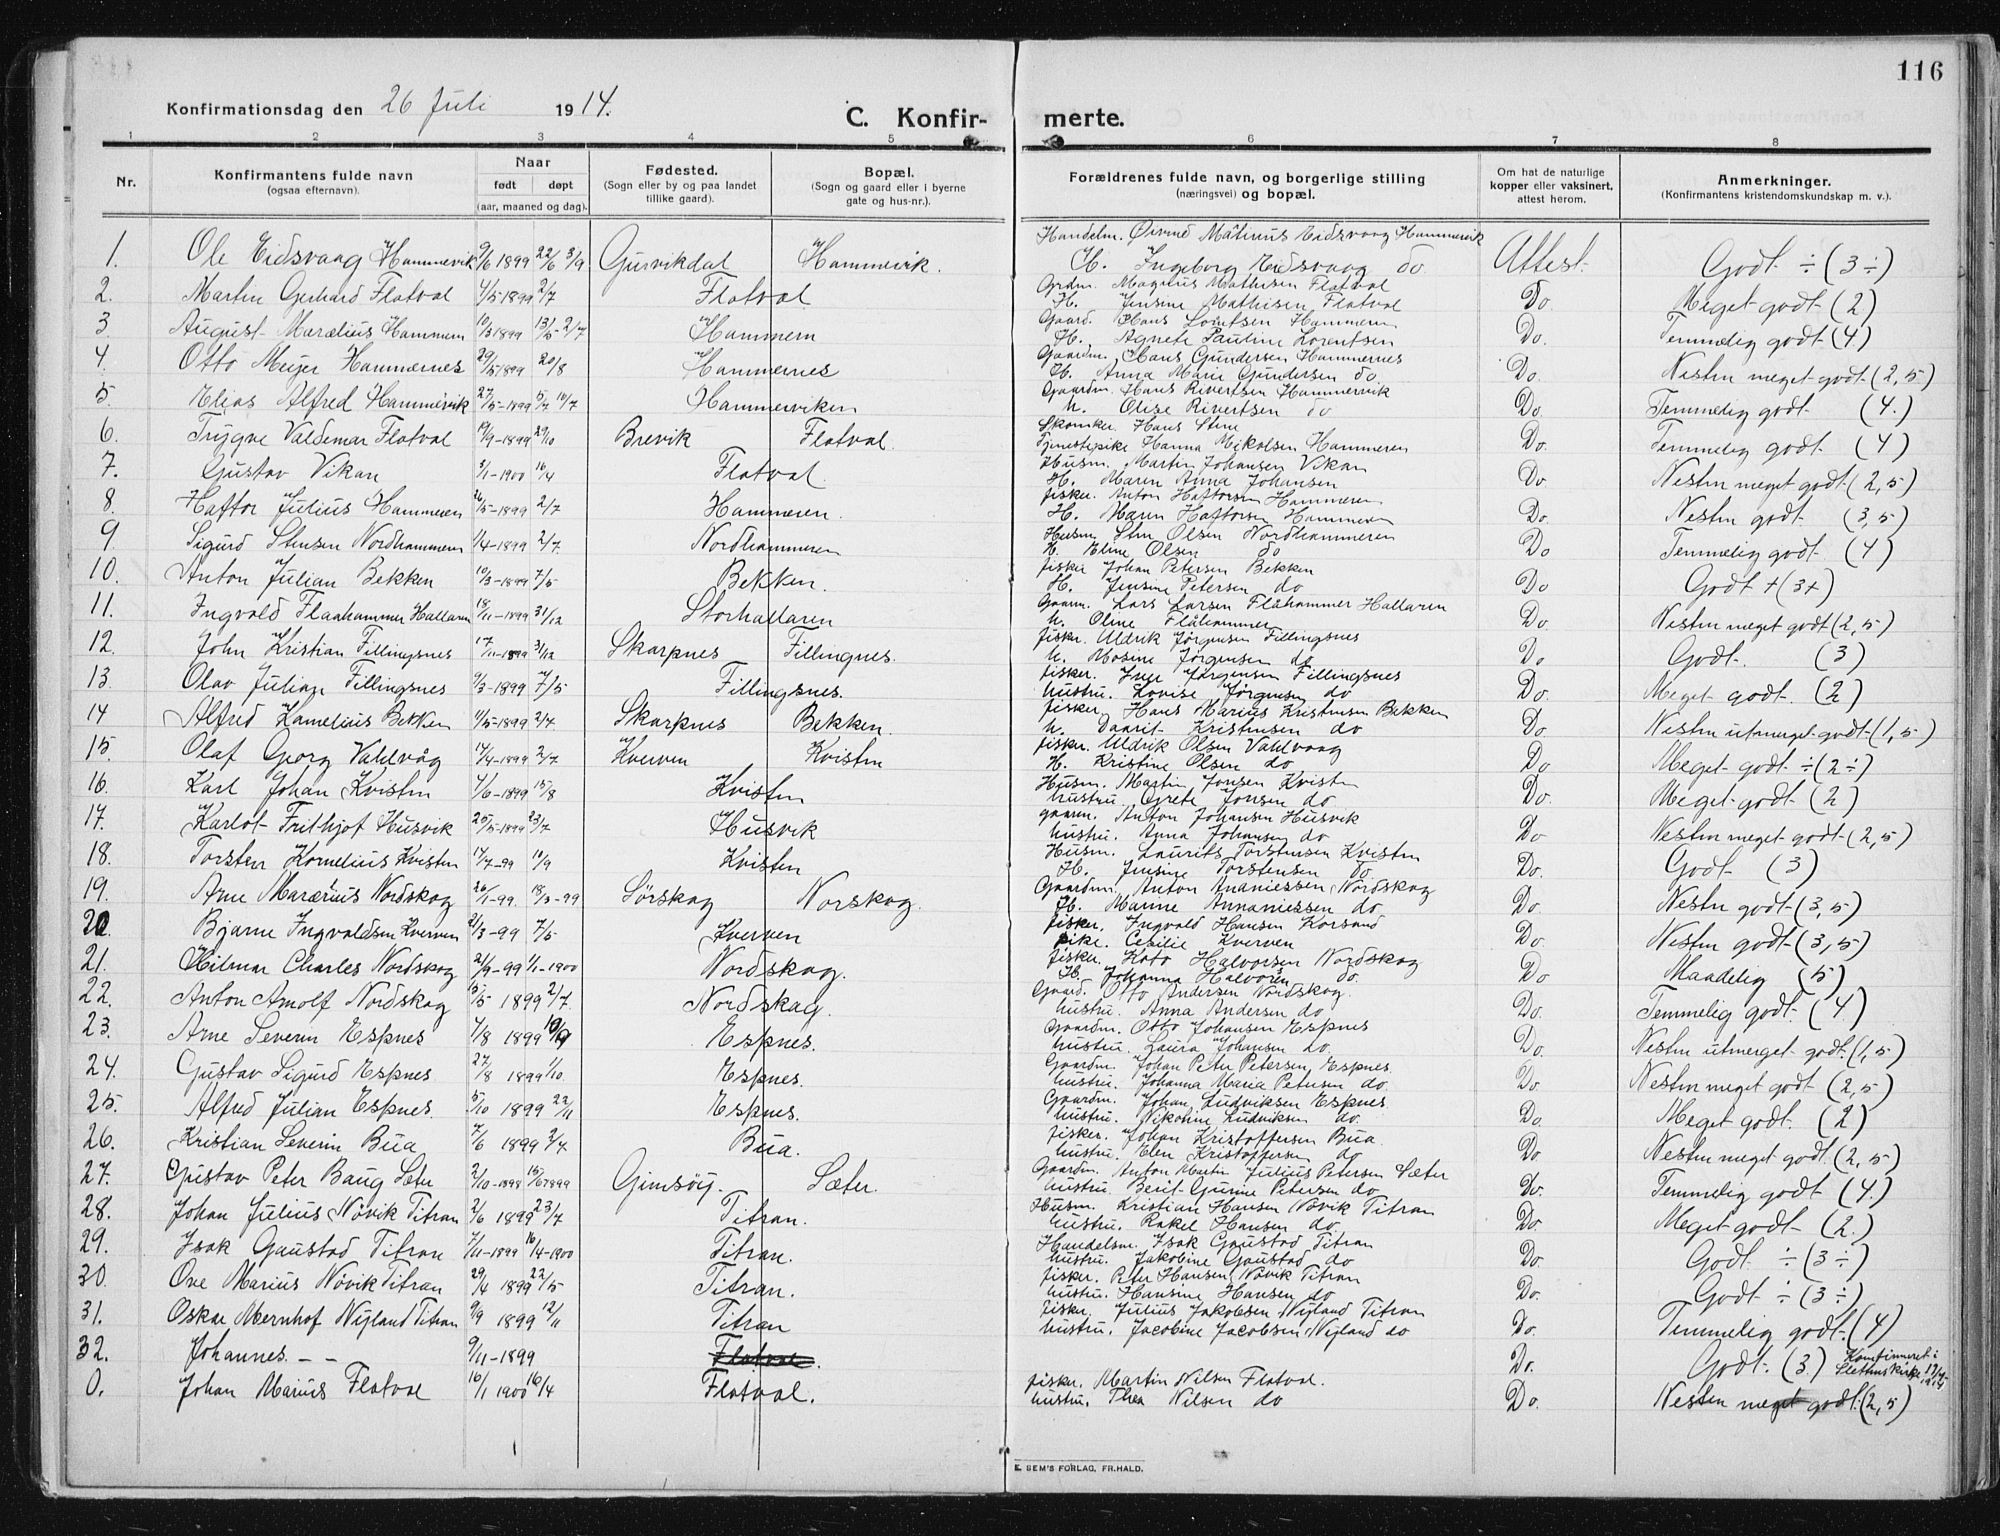 116
Konfirmationsdag den 26 Juli 1914.
C. Konfir- merte.
1 2 3 4 5 6 7 8
Nr. Konfirmantens fulde navn (ogsaa efternavn). Naar født døpt (aar, maaned og dag). Fødested. (Sogn eller by og paa landet tillike gaard). Bopæl. (Sogn og gaard eller i byerne gate og hus-nr.). Forældrenes fulde navn, og borgerlige stilling (næringsvei) og bopæl. Om hat de naturlige kopper eller vaksinert, attest herom. Anmerkninger. (Konfirmantens kristendomskundskap m. v.).
Handelm. Øivind Matinus Eidsvaag Hammervik
1. Ole Eidsvaag Hammervik 9/6 1899 22/6 3/9 Gurvikdal Hammervik. H. Ingeborg Eidsvaag do Attest Godt ÷ (3÷)
Grdm. Magnus Mathisen Flatval
2. Martin Gerhard Flatval 4/5-1899 2/7 Flatval H. Jensine Mathisen Flatval Do Meget godt (2)
Gaard. Hans Lorntsen Hammern
3. August Marælius Hammern 10/3 1899 13/5-2/7 Hammern H. Agnete Pauline Lorentsen Do. Temmelig godt (4)
Gaardm. Hans Gundersen Hammernes
4. Otto Meyer Hammernes 29/5 1899 20/8 Hammernes H. Anna Marie Gundersen do Do. Nesten meget godt (2,5)
Gaardm. Hans Rivertsen Hammervik
5. Elias Alfred Hammervik 27/5-1899 5/7 10/7 Hammerviken h. Olise Rivertsen do Do. Temmelig godt (4.)
Skomker. Hans Stene
6. Trygve Valdemar Flatval 19/9-1899 29/10 Brevik Flatval. Tjenestepike Hanna Mikalsen Hammeren Do. Temmelig godt (4)
Husm. Martin Johansen Vikan
7. Gustav Vikan 3/1-1900 16/4 Flatval H. Maren Anna Johansen Do Nesten meget godt (2,5)
fisker. Anton Haftorsen Hammeren
8. Haftor Julius Hammeren 26/5-1899 2/7 Hammeren. H. Maren Haftorsen Hammern Do. Nesten godt (3,5)
Husm Sten Olsen Nordhammeren
9. Sigurd Stensen Nordhammern 1/4-1899 2/7 Nordhammeren H. Eline Olsen do Do Temmelig godt (4)
fisker Johan Petersen Bekken
10. Anton Julian Bekken 10/3-1899 7/5 Bekken. H. Jensine Petersen do Do Godt + (3+)
Gaardm. Lars Larsen Flåhammer Hallaren
11. Ingvald Flaahammer Hallaren 18/11-1899 31/12 Storhallaren h. Oline Flåhammer Do. Nesten meget godt (2,5)
fisker. Uldrik Jørgensen Fillingsnes
12. John Kristian Fillingsnes 17/11-1899 31/12 Skarpnes Fillingnes. h. Mosine Jørgensen do Do Godt. (3)
fisker. Iver Jørgensen Fillingsnes
13. Olav Julian Fillingsnes 9/3-1899 7/5 Fillingsnes. hustru. Lovise Jørgensen do Do. Meget godt. (2)
fisker. Hans Marius Kristensen Bekken
14 Alfred Kornelius Bekken 4/5-1899 2/7 Skarpnes Bekken. h. Daarit Kristensen do Do. Nesten utmerget godt (1,5)
fisker. Uldrik Olsen Vahlvaag
15. Olaf Georg Vahlvåg 14/4-1899 2/7 Kverven Kvisten H. Kristine Olsen do Do Meget godt ÷ (2÷)
Husm. Martin Jonsen Kvisten
16. Karl Johan Kvisten 4/6-1899 15/8 Kvisten hustru. Grete Jonsen do Do. Meget godt (2)
gaardm. Anton Johansen Husvik
17. Karlot Frithjof Husvik 25/5-1899 23/7 Husvik hustru. Anna Johansen do Do Nesten meget godt (2,5)
Husm. Laurits Torstensen Kvisten
18. Torsten Kornelius Kvisten 14/7-99 10/9 Kvisten H. Jensine Torstensen Do Do. Godt (3)
Gaardm. Anton Ananiessen Nordskog
19. Arne Marærius Nordskog 26/1-99. 18/3-99 Sörskag Norskog. H. Marine Annaniessen do Do. Nesten godt (3,5)
fisker. Ingvald Hansen Korsand
20. Bjarne Ingvaldsen Kverven 21/3-99 7/5 Kverven pike. Cecilie Kverven Do. Nesten godt (3,5)
fisker. Kato Halvorsen Nordskog
21. Hilmar Charles Nordskog 21/9-99 1/1-1900 Nordskog. H. Johanna Halvoren do. Do Maadelig (5)
Gaard. Otto Andersen Nordskog.
22. Anton Arnolf Nordskog 5/5 1899 2/7. Nordskag. hustru. Anna Andersen do Do. Temmelig godt. (4.)
Gaardm. Otto Johansen Espnes
23. Arne Severin Espnes 7/8 1899 10/9 Espnes. hustru. Laura Johansen do. Do. Nesten utmerget godt. (1,5)
Gaardm. Johan Peter Petersen Espnes
24. Gustav Sigurd Espnes. 27/8 1899 1/10. Espnes. hustru. Johanna Maria Petersen do. Do. Nesten meget godt (2,5)
Gaardm. Johan Ludviksen Espnes
25. Alfred Julian Espnes. 5/10 1899 22/11 Espnes. hustru. Nikoline Ludviksen do. Do. Meget godt. (2)
fisker. Johan Kristoffersen Bua.
26. Kristian Severin Bua 7/6 1899 2/7 Bua. hustru. Elen Kristoffersen do Do Nesten meget godt (2,5)
Gaardm. Anton Martin Julius Petersen Sæter
27. Gustav Peter Baug Sæter 2/10-1898 15/6 1899 Gimsöy. Sæter. hustru. Berit Gurine Petersen do Do. Temmelig godt (4.)
Husm. Kristian Hansen Növik Titran
28. Johan Julius Növik Titran 2/6 1899 23/7 Titran. hustru. Rakel Hansen do Do. Meget godt (2.)
Handelsm. Isak Gaustad Titran
29. Isak Gaustad Titran 7/11-1899 16/4-1900 Titran. hustru. Jakobine Gaustad do Do. Godt ÷ (3÷)
fisker. Peter Hansen Növik Titran
30. Ove Marius Növik Titran 29/4 1899 22/5 Titran. hustru. Hansine Hansen do Do. Godt ÷ (3÷)
fisker. Julius Jakobsen Nyland Titran
31. Oskar Mernhof Nyland Titran 9/9 1899 12/11 Titran hustru. Jacobine Jacobsen Nyland do Do. Temmelig godt. (4)
32. Johannes. - - 9/11-1899 Flatval. Do. Godt. (3) Konfirmeret i Slettens kirke
fisker. Martin Nilsen Flatval.
0. Johan Marius Flatval 16/1 1900 16/4 Flatval. hustru. Thea Nilsen do Do Nesten meget godt. (2,5)
E. SEM'S FORLAG, FR.HALD.